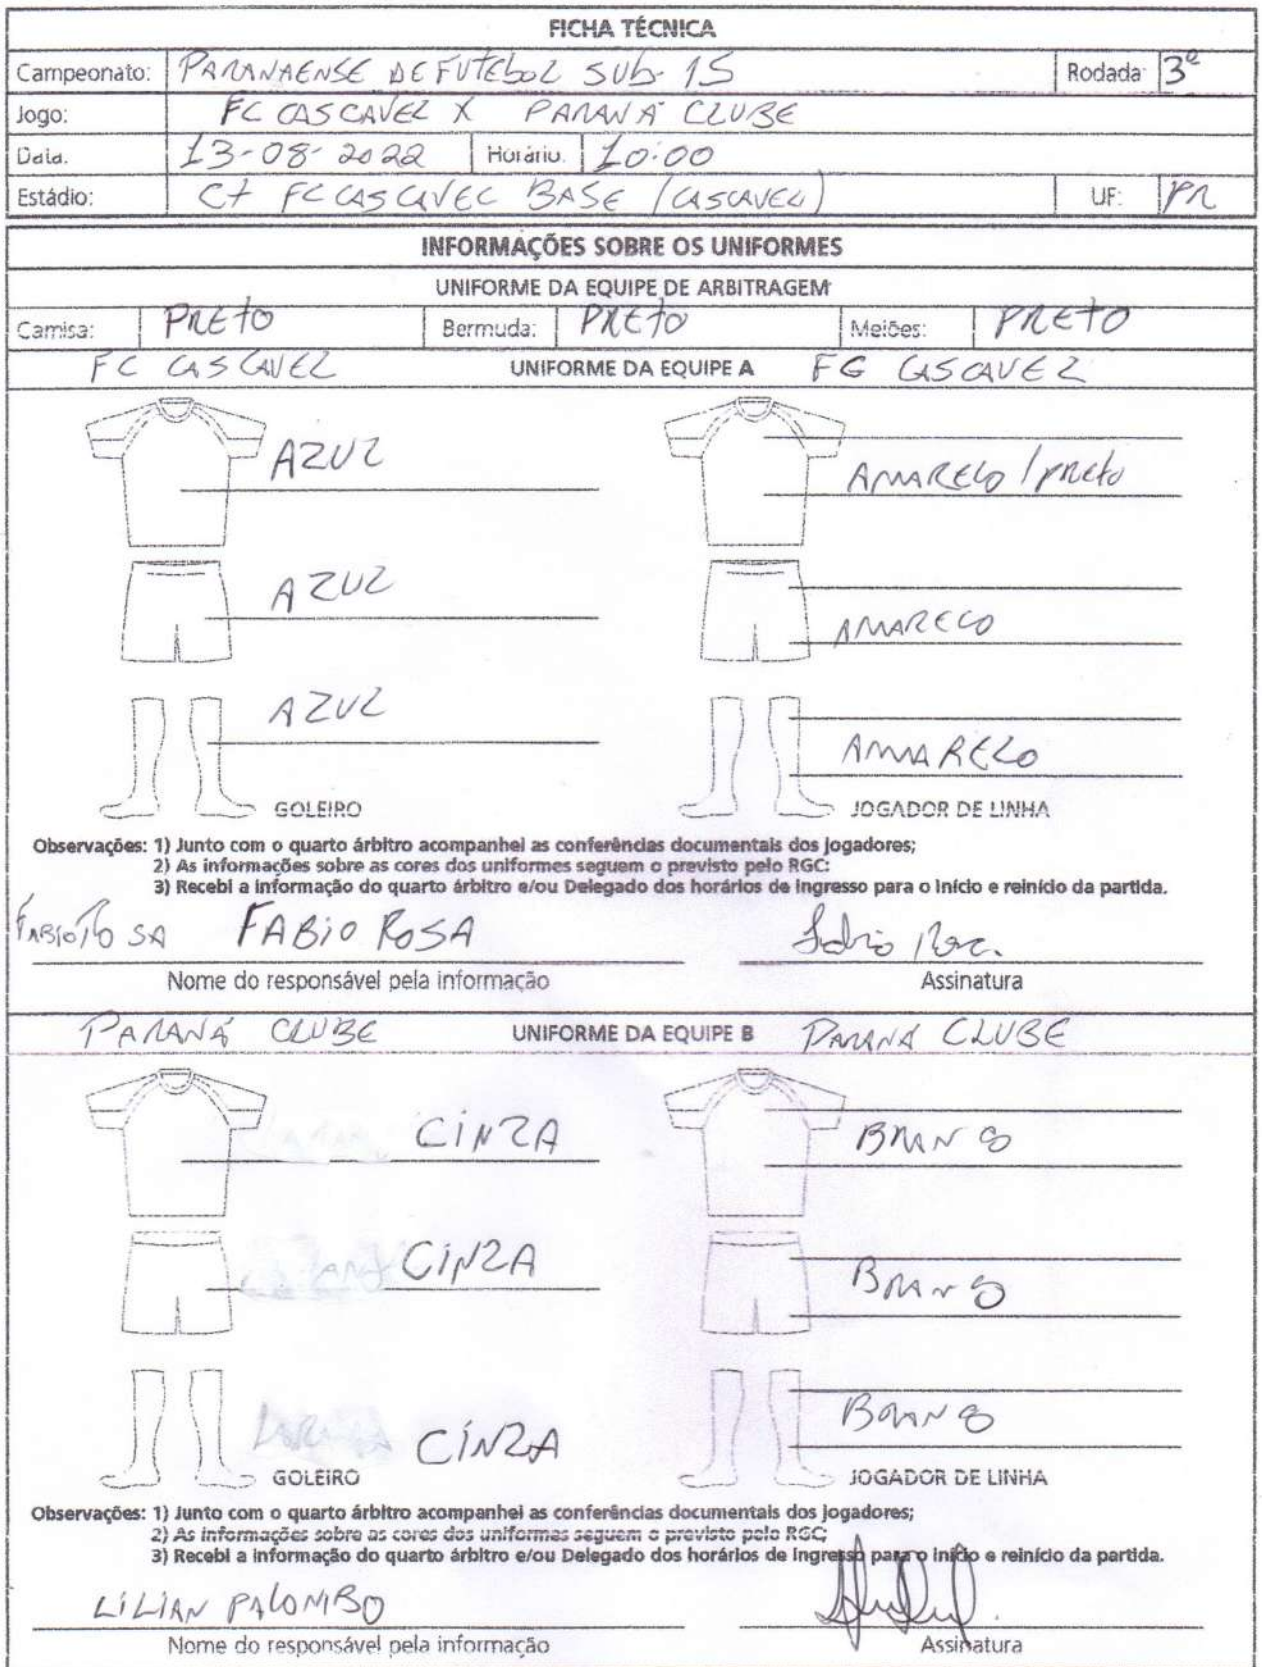 FICHA TÉCNICA
Campeonato: PARANAENSE DE FUTEBOL SUB-15 Rodada: 3ª
Jogo: FC CASCAVEL X PARANÁ CLUBE
Data: 13-08-2022 Horário: 10:00
Estádio: CT FC CASCAVEL BASE (CASCAVEL) UF: PR
INFORMAÇÕES SOBRE OS UNIFORMES
UNIFORME DA EQUIPE DE ARBITRAGEM
Camisa: PRETO Bermuda: PRETO Meiões: PRETO
FC CASCAVEL UNIFORME DA EQUIPE A FC CASCAVEL
AZUL AMARELO / PRETO
AZUL AMARELO
AZUL AMARELO
GOLEIRO JOGADOR DE LINHA
Observações: 1) Junto com o quarto árbitro acompanhei as conferências documentais dos jogadores;
2) As informações sobre as cores dos uniformes seguem o previsto pelo RGC;
3) Recebi a informação do quarto árbitro e/ou Delegado dos horários de ingresso para o início e reinício da partida.
FABIO ROSA FABIO ROSA Fabio Rosa.
Nome do responsável pela informação Assinatura
PARANÁ CLUBE UNIFORME DA EQUIPE B PARANÁ CLUBE
CINZA BRANCO
CINZA BRANCO
CINZA BRANCO
GOLEIRO JOGADOR DE LINHA
Observações: 1) Junto com o quarto árbitro acompanhei as conferências documentais dos jogadores;
2) As informações sobre as cores dos uniformes seguem o previsto pelo RGC;
3) Recebi a informação do quarto árbitro e/ou Delegado dos horários de ingresso para o início e reinício da partida.
LILIAN PALOMBO
Nome do responsável pela informação Assinatura